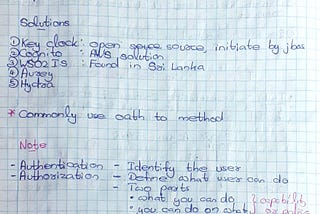 Solutions
① Key clock : open source source, initiate by jboss
② Cognito : AWS solution
③ WSO2 IS : Found in Sri Lanka
④ Aurey
⑤ Hydra
* Commonly use oath to method
Note
- Authentication - Identify the user
- Authorization - Define what user can do
- Two parts
• what you can do
• you can do on what